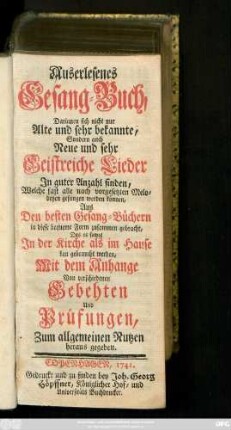 Auserlesenes
Gesang-Buch,
Darinnen sich nicht nur
Alte und sehr bekannte,
Sondern auch
Neue und sehr
Geistreiche Lieder
In guter Anzahl finden,
Welche fast alle nach vorgesetzten Melo-
deyen gesungen werden können,
Aus
Den besten Gesang-Büchern
in diese bequeme Form zusammen gebracht,
Daß es sowol
In der Kirche als im Hause
kan gebraucht werden,
Mit dem Anhange
Von verschiedenen
Gebehten
Und
Prüfungen,
Zum allgemeinen Nutzen
heraus gegeben.
COPENHAGEN, 1741.
Gedruckt und zu finden bey Joh. Georg
Höpffner, Königlicher Hof- und
Universitäts Buchdrucker.